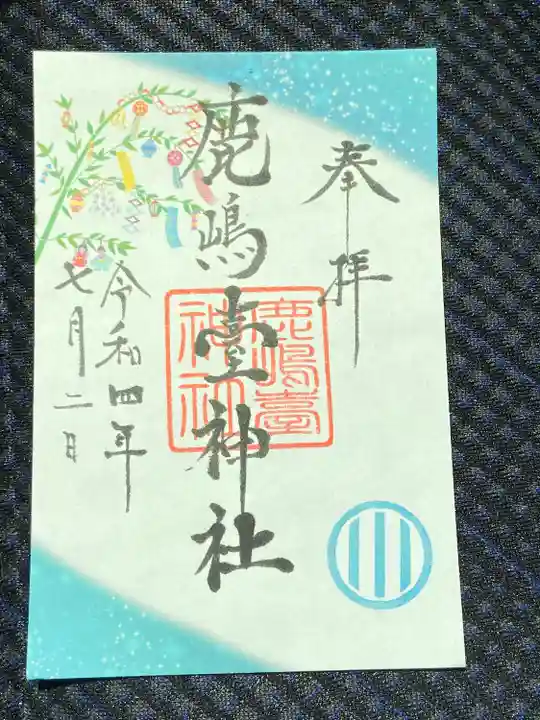 奉拝
鹿嶋臺神社
鹿嶋臺
神社
令和四年
七月二日